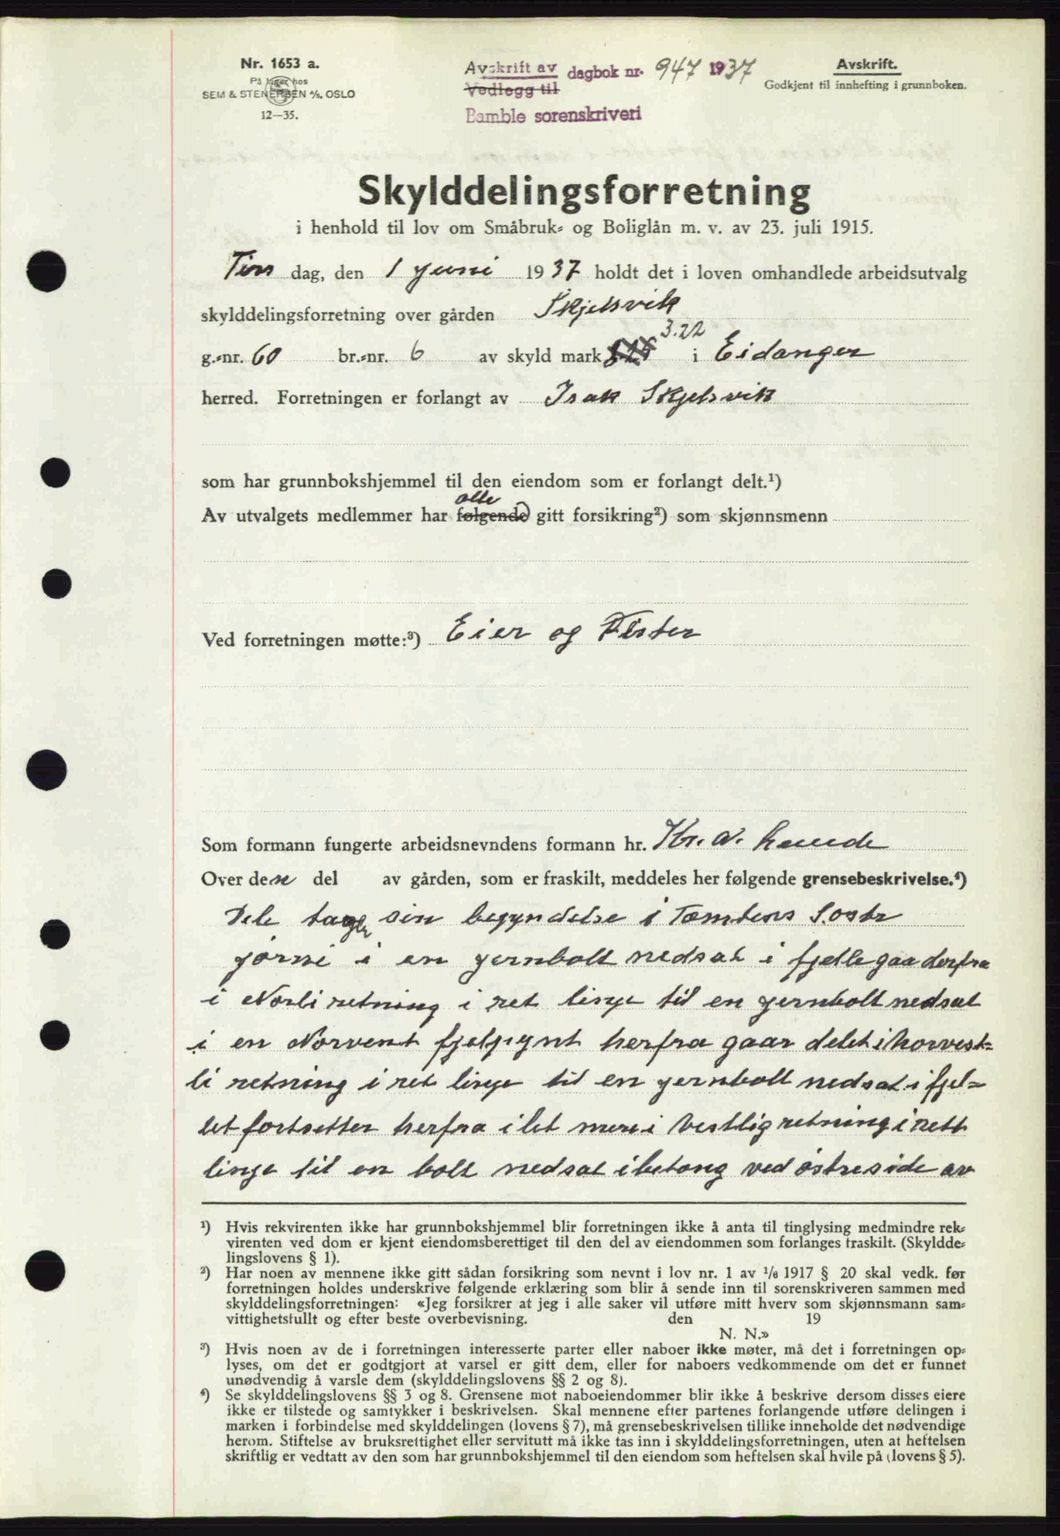 Nr. 1653 a.
På lager hos
SEM & STENERSEN A/S, OSLO
12—35.
Avskrift av dagbok nr. 947 1937
Vedlegg til
Bamble sorenskriveri
Avskrift.
Godkjent til innhefting i grunnboken.
Skylddelingsforretning
i henhold til lov om Småbruk- og Boliglån m. v. av 23. juli 1915.
Tirs dag, den 1 juni 1937 holdt det i loven omhandlede arbeidsutvalg
skylddelingsforretning over gården Skjelsvik
g.-nr. 60 br.-nr. 6 av skyld mark 3.22 i Eidanger
herred. Forretningen er forlangt av Isak Skjelsvik
som har grunnbokshjemmel til den eiendom som er forlangt delt.¹)
Av utvalgets medlemmer har alle følgende gitt forsikring²) som skjønnsmenn
Ved forretningen møtte:³) Eier og Fester
Som formann fungerte arbeidsnevndens formann hr. Kr. A. Lunde
Over den del av gården, som er fraskilt, meddeles her følgende grensebeskrivelse.⁴)
Dele tager sin begyndelse i Tomtens S.ostr
jørne i en jernbolt nedsat i fjelle gaa derfra
i Norli retning i ret linje til en jernbolt nedsat
i en Norvent fjelpynt herfra gaar delet i norvest-
li retning i ret linje til en jernbolt nedsat i fjel-
let fortsetter herfra i let mere i Vestlig retning i rett
linje til en bolt nedsat i betong ved østre side av
¹) Hvis rekvirenten ikke har grunnbokshjemmel blir forretningen ikke å anta til tinglysing medmindre rek-
virenten ved dom er kjent eiendomsberettiget til den del av eiendommen som forlanges fraskilt. (Skyldde-
lingslovens § 1).
²) Har noen av mennene ikke gitt sådan forsikring som nevnt i lov nr. 1 av 1/6 1917 § 20 skal vedk. før
forretningen holdes underskrive følgende erklæring som blir å sende inn til sorenskriveren sammen med
skylddelingsforretningen: «Jeg forsikrer at jeg i alle saker vil utføre mitt hverv som skjønnsmann sam-
vittighetsfullt og efter beste overbevisning. den 19
N. N.»
³) Hvis noen av de i forretningen interesserte parter eller naboer ikke møter, må det i forretningen op-
lyses, om det er godtgjort at varsel er gitt dem, eller for naboers vedkommende om det er funnet
unødvendig å varsle dem (skylddelingslovens §§ 2 og 8).
⁴) Se skylddelingslovens §§ 3 og 8. Grensene mot naboeiendommer blir ikke å beskrive dersom disses eiere
ikke er tilstede og samtykker i beskrivelsen. Skal mennene efter partenes forlangende utføre delingen i
marken i forbindelse med skylddelingen (lovens § 7), må grensebeskrivelsen tillike inneholde det nødvendige
herom. Stiftelse av bruksrettighet eller servitutt må ikke tas inn i skylddelingsforretningen, uten at heftelsen
skriftlig er vedtatt av den som har grunnbokshjemmel til den eiendom som heftelsen skal hvile på (lovens § 5).